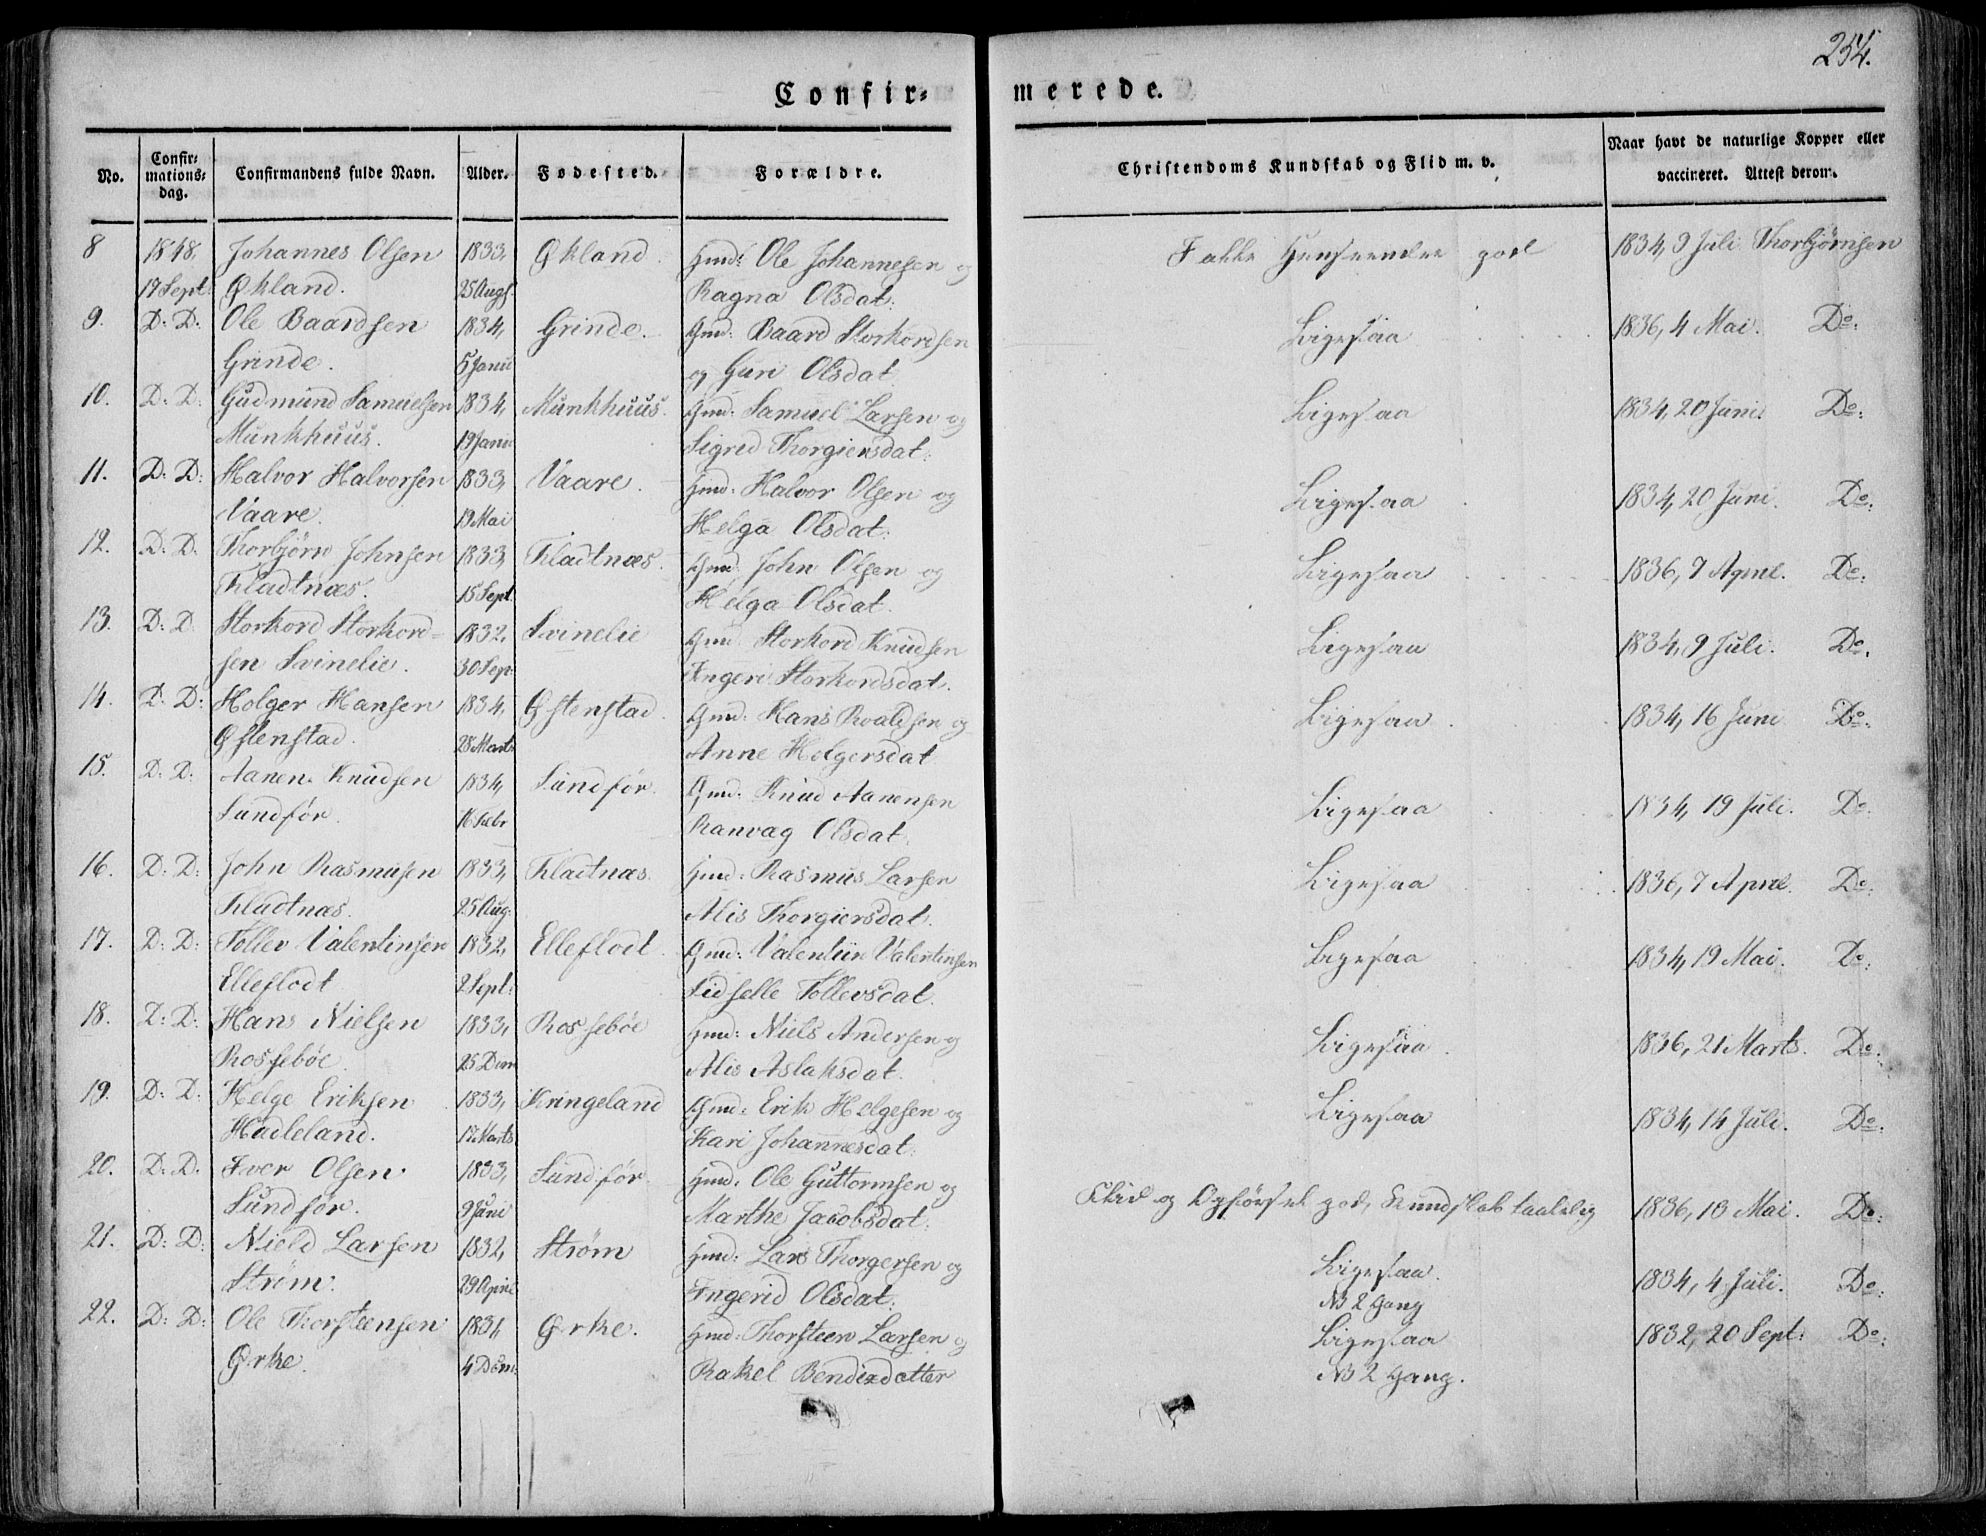 254.
Confir=
merede.
No.
Confir=
mations=
dag.
Confirmandens fulde Navn.
Alder.
Fødested.
Forældre.
Christendoms Kundskab og Flid m. v.
Naar havt de naturlige Kopper eller
vaccineret. Attest derom.
8 1848, Johannes Olsen 1833, Økland. Gmd: Ole Johannesen og I alle Henseender god 1834, 9 Juli Thorbjørnsen
17 Sept: Økland. 25 Aug. Ragna Olsdat:
9. D: D: Ole Baardsen 1834, Grinde. Gmd: Baard Storkordsen Ligesaa 1836, 4 Mai. Do:
Grinde. 5 Janu og Guri Olsdat
10. D: D: Gudmund Samuelsen 1834, Munkhuus. Gmd: Samuel Larsen og Ligesaa 1834, 20 Juni Do:
Munkhuus. 19 Janu Sigred Thorgiersdat:
11. D: D: Halvor Halvorsen 1833, Vaare. Gmd: Halvor Olsen og Ligesaa 1834, 20 Juni. Do:
Vaare. 19 Mai Helga Olsdat:
12. D: D. Thorbjörn Johnsen 1833, Fladtnæs. Gmd. John Olsen og Ligesaa 1836, 7 April. Do:
Fladtnæs. 15 Sept Helga Olsdat.
13. D: D Storkord Storkord= 1832, Svinelie Gmd Storkord Knudsen Ligesaa 1834, 9 Juli. Do.
sen Svinelie. 30 Sep Ingeri Storkordsdat.
14. D: D: Holger Hansen 1834, Østenstad. Gmd: Hans Roaldsen og Ligesaa 1834, 16 Juni Do:
Østenstad. 28 Marts Anne Holgersdat
15. D: D: Aanen Knudsen 1834, Sundfør. Gmd: Knud Aanensen Ligesaa 1834, 19 Juli. Do:
Sundfør. 16 Febr Ranvag Olsdat.
16. D: D: John Rasmusen 1833, Fladtnæs. Gmd: Rasmus Larsen Ligesaa 1836, 7 April. Do:
Fladtnæs. 25 Aug: Alis Thorgiersdat.
17. D: D: Tollev Valentinsen 1832, Elleflodt. Gmd: Valentin Valentinsen Ligesaa 1834, 19 Mai. Do:
Elleflodt 2 Sept: Sidselle Tollevsdat.
18. D: D: Hans Nielsen 1833, Rossebøe Gmd: Niels Andersen og Ligesaa 1836, 21 Marts. Do:
Rossebøe. 25 Alis Aslaksdat.
19. D: D. Helge Eriksen 1833, Kringeland Gmd: Erik Helgesen og Ligesaa 1834, 14 Juli. Do:
Hadleland. 17 Marts Kari Johannesdat:
20. D: D. Iver Olsen 1833, Sundfør. Gmd. Ole Guttormsen og Flid og Opførsel god, Kundskab taalelig 1836, 13 Mai. Do:
Sundfør. 9 Juni Marthe Jacobsdat:
21. D: D: Nield Larsen 1832, Strøm Gmd: Lars Thorgersen og Ligesaa. 1834, 4 Juli. Do:
Strøm. 29 April Ingerid Olsdat: NB 2 Gang
22. D: D: Ole Thorsteensen 1831, Ørke. Gmd: Thorsteen Larsen og Ligesaa 1832, 20 Sept: Do:
Ørke. 4 Rakel Bendixdatter NB 2 Gang.